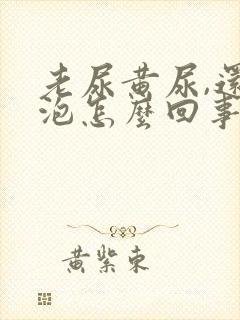 老尿黄尿,還
泡怎麼回事
黄紫東